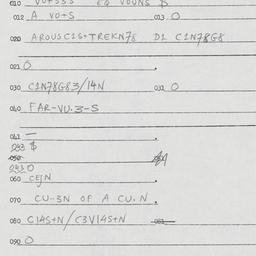 010 VU+SSS EQ VOUNS B
012 A VO+S 013 O
020 AROUSC1G+TREKN78 D1 C1N78G8
021 O
030 C1N78G83/14N 031 O
040 FAR-VU.3-S
041 —
033 $
050
043 O
060 CEJN
070 CU-3N OF A CU.N.
080 C14S+N/C3V14S+N 081
090 O